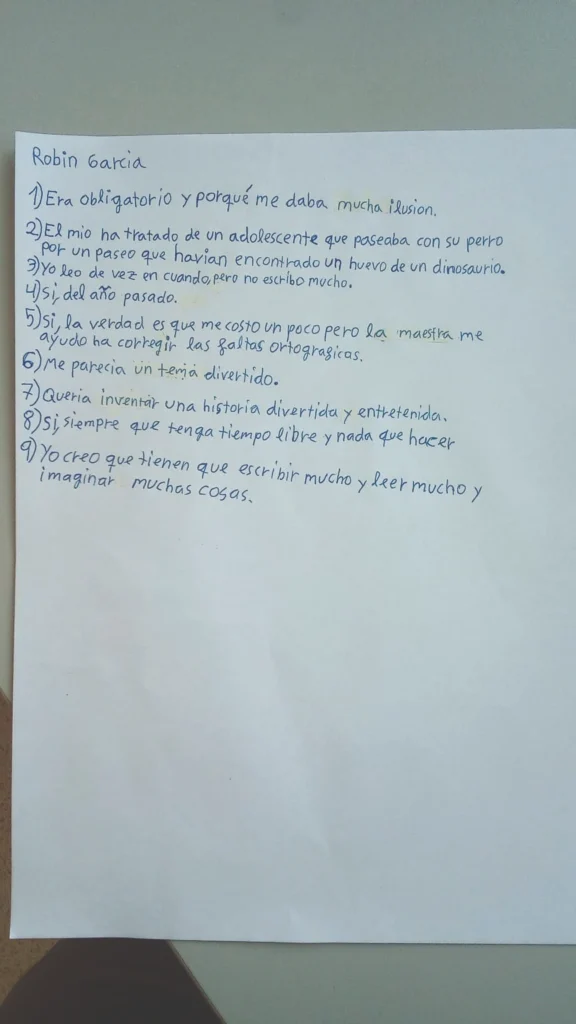 Robin Garcia
1) Era obligatorio y porqué me daba mucha ilusion.
2) El mio ha tratado de un adolescente que paseaba con su perro
por un paseo que havian encontrado un huevo de un dinosaurio.
3) Yo leo de vez en cuando, pero no escribo mucho.
4) Si, del año pasado.
5) Si, la verdad es que me costo un poco pero la maestra me
ayudo ha corregir las faltas ortograficas.
6) Me parecia un tema divertido.
7) Queria inventar una historia divertida y entretenida.
8) Si, siempre que tenga tiempo libre y nada que hacer
9) Yo creo que tienen que escribir mucho y leer mucho y
imaginar muchas cosas.